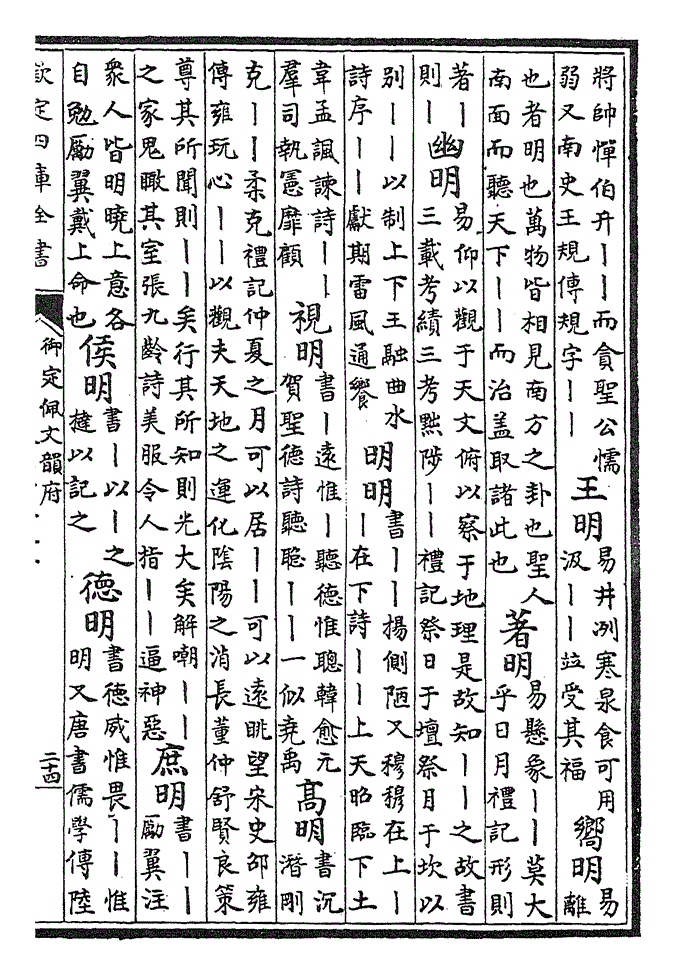 將帥憚伯升丨丨而貪聖公懦
弱又南史王規傳規字丨丨
王明
易井冽寒泉食可用
汲丨丨竝受其福
嚮明
易
離
也者明也萬物皆相見南方之卦也聖人
南面而聽天下丨丨而治盖取諸此也
著明
易懸象丨丨莫大
乎日月禮記形則
著丨
則丨
幽明
易仰以觀于天文俯以察于地理是故知丨丨之故書
三載考績三考黜陟丨丨禮記祭日于壇祭月于坎以
別丨丨以制上下王融曲水
詩序丨丨獻期雷風通饗
明明
書丨丨揚側陋又穆穆在上丨
丨在下詩丨丨上天昭臨下土
韋孟諷諫詩丨丨
羣司執憲靡顧
視明
書丨遠惟丨聽德惟聰韓愈元
賀聖德詩聽聰丨丨一似堯禹
高明
書沉
潛剛
克丨丨柔克禮記仲夏之月可以居丨丨可以遠眺望宋史邵雍
傳雍玩心丨丨以觀夫天地之運化陰陽之消長董仲舒賢良策
尊其所聞則丨丨矣行其所知則光大矣解嘲丨丨
之家鬼瞰其室張九齡詩美服令人指丨丨逼神惡
庶明
書丨丨
勵翼注
衆人皆明曉上意各
自勉勵翼戴上命也
侯明
書丨以丨之
撻以記之
德明
書德威惟畏丨丨惟
明又唐書儒學傳陸
欽定四庫全書
御定佩文韻府
二十四